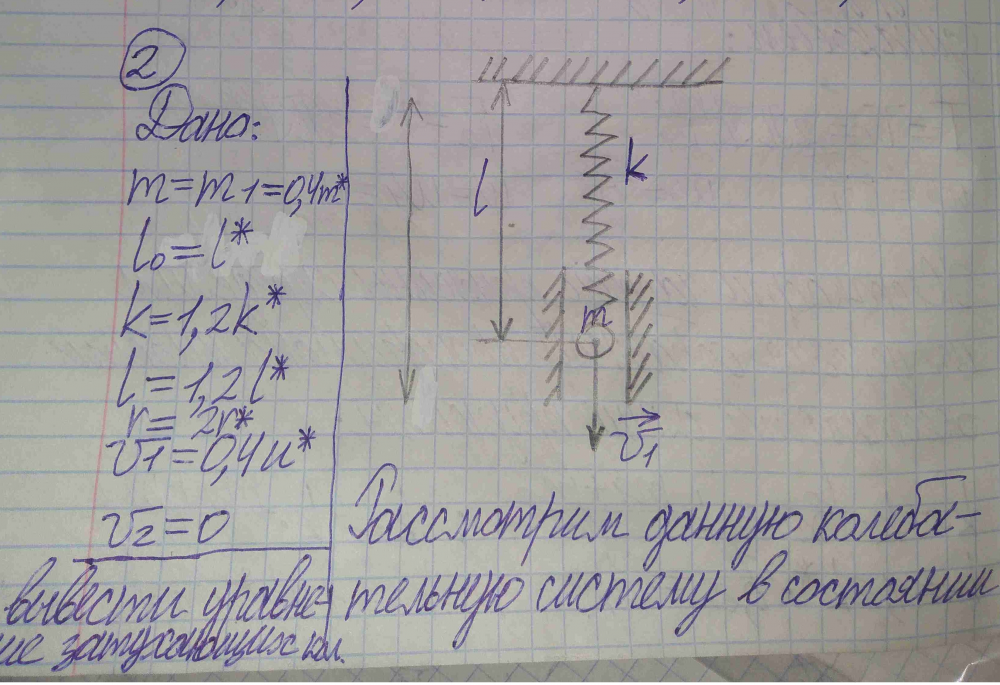 2
Дано:
m=m1=0,4m*
l0=l*
k=1,2k*
l=1,2l*
r=2r*
v1=0,4u*
v2=0
вывести уравне-
ие затухающих кол.
l
k
m
v1
Рассмотрим данную колеба-
тельную систему в состоянии